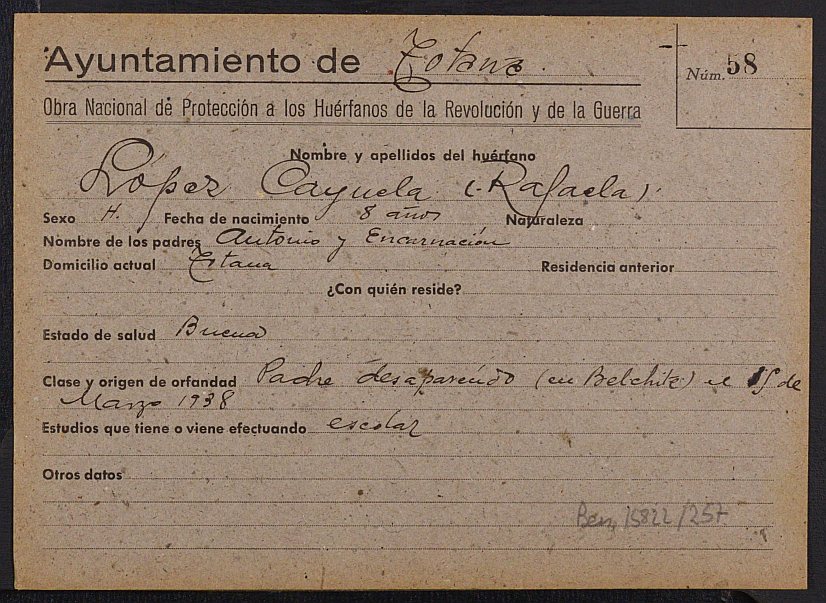 Ayuntamiento de Totana.
Núm. 58
Obra Nacional de Protección a los Huérfanos de la Revolución y de la Guerra
Nombre y apellidos del huérfano
López Cayuela (Rafaela)
Sexo H. Fecha de nacimiento 8 años Naturaleza
Nombre de los padres Antonio y Encarnación
Domicilio actual Totana Residencia anterior
¿Con quién reside?
Estado de salud Buena
Clase y origen de orfandad Padre desaparecido (en Belchite) el de
Marzo 1938
Estudios que tiene o viene efectuando escolar
Otros datos
15822/257